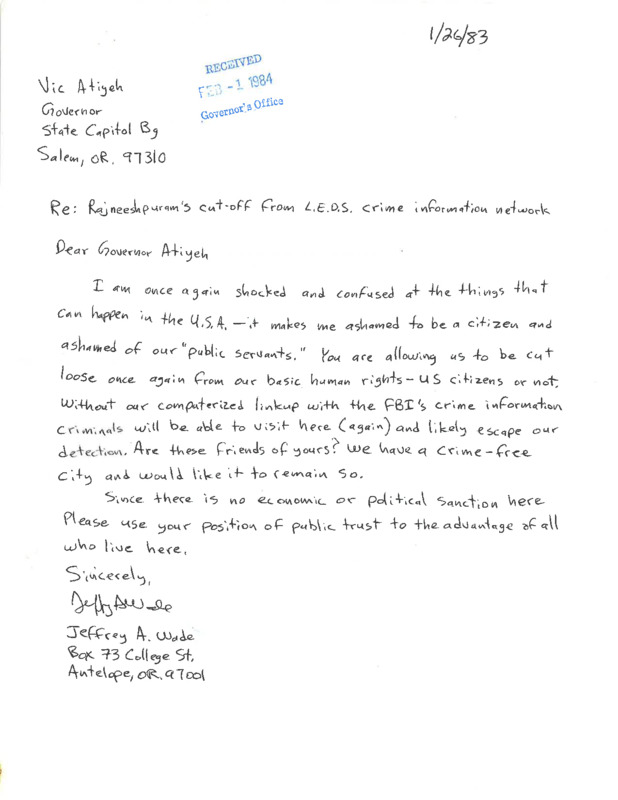 1/26/83
RECEIVED
FEB -1 1984
Governor's Office
Vic Atiyeh
Governor
State Capitol Bg
Salem, OR. 97310
Re: Rajneeshpuram's cut-off from L.E.D.S. crime information network
Dear Governor Atiyeh
I am once again shocked and confused at the things that
can happen in the U.S.A. — it makes me ashamed to be a citizen and
ashamed of our "public servants." You are allowing us to be cut
loose once again from our basic human rights - US citizens or not.
Without our computerized linkup with the FBI's crime information
criminals will be able to visit here (again) and likely escape our
detection. Are these friends of yours? We have a crime-free
city and would like it to remain so.
Since there is no economic or political sanction here
Please use your position of public trust to the advantage of all
who live here.
Sincerely,
Jeffrey A. Wade
Box 73 College St.
Antelope, OR. 97001